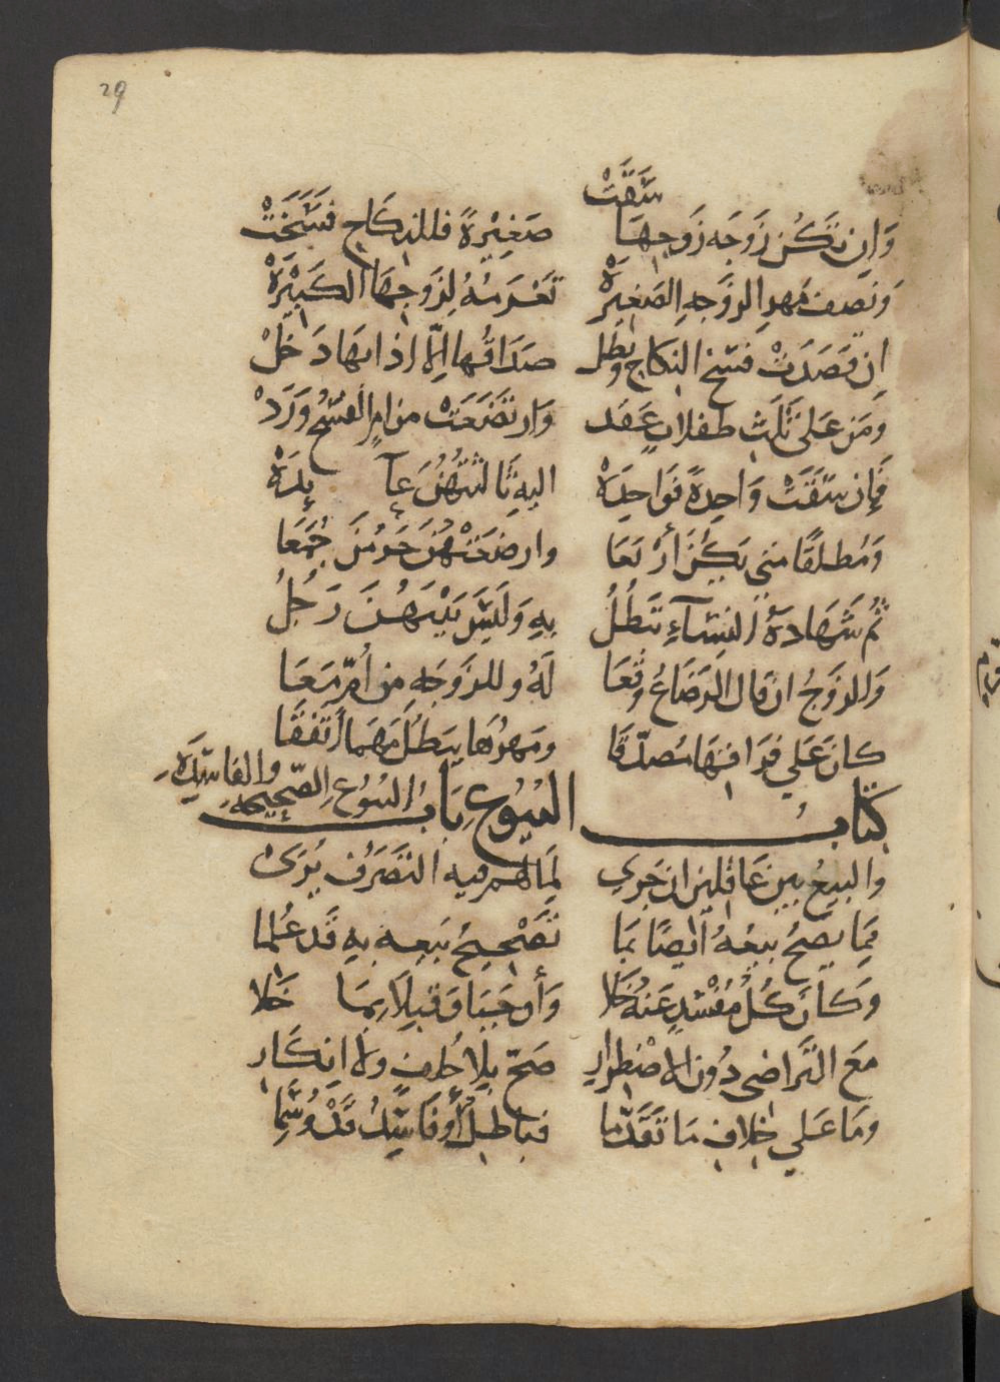 29
سَقَتْ
وَان تَكُن زَوجَه زَوجِهَا صَغِيْرَةً فللنِكَاحِ فَسَخَتْ
وَنصف مَهرِ الزوَجهِ الصَغِيرَهْ تَغْرَمُهُ لِزَوجِهَا الكَبِيْرَهْ
اِن قَصَدَتْ فسْخ النِكاحِ وبَطل صَدَاقُها اِلّا اذا بهَا دَخلْ
ومَن عَلى ثَلَثِ طفلاتٍ عَقَد وَارتَضَعَتْ من امٍ الفسْخُ وَرَدْ
فَإِن سَقَتْ وَاحِدةً فوَاحِدَهْ اليهِ ثالثتُهُنَ عآ يِدَهْ
وَمُطلقًا متي يَكُنَ أرْبَعَا وارضعَتْهُن حَرُمْنَ جُمَعَا
ثُم شَهَادةُ النِسَآءِ تَبْطُلُ بِهِ وَلَيسَ بَيْنهُنَ رَجُلُ
وَالزوَجُ ان قال الرَضَاعُ وقَعَا لَهُ وللزوَجَه من أمٍّ مَعَا
كانَ عَلي فِرَاقِهَا مُصدّقا ومَهرُهَا يَبطُلُ مَهمَا أتفَقَا
كتَابُ البُيُوعِ بَابُ البُيُوعِ الصّحِيحهِ والفاسِدَهِ
والبيعُ بين عَاقلين ان جَري لِمَا لهم فيه التَصَرفُ يُرَى
فِمَا يَصِحُ بيعُهُ ايضًا بمَا تَصْحِيحُ بَيعِه بِهِ قَد عُلما
وَكانَ كُلُ مُفْسدٍ عَنهُ خَلا وَأوجَبَا وَقبِلَا بِمَا خَلا
معَ التَراضي دُونَ الاضْطرارِ صَحّ بلَا خُلفٍ ولا انكَارِ
ومَا عَلي خِلافِ مَا تَقَدّمَا فبَاطلٌ أو فَاسِدٌ قَدْ وُسِمَا